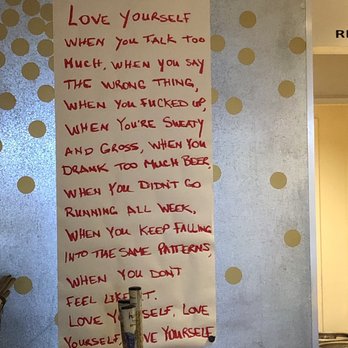 LOVE YOURSELF
WHEN YOU TALK TOO
MUCH, WHEN YOU SAY
THE WRONG THING,
WHEN YOU FUCKED UP,
WHEN YOU'RE SWEATY
AND GROSS, WHEN YOU
DRANK TOO MUCH BEER,
WHEN YOU DIDN'T GO
RUNNING ALL WEEK,
WHEN YOU KEEP FALLING
INTO THE SAME PATTERNS,
WHEN YOU DON'T
FEEL LIKE IT.
LOVE YOURSELF. LOVE
YOURSELF. LOVE YOURSELF